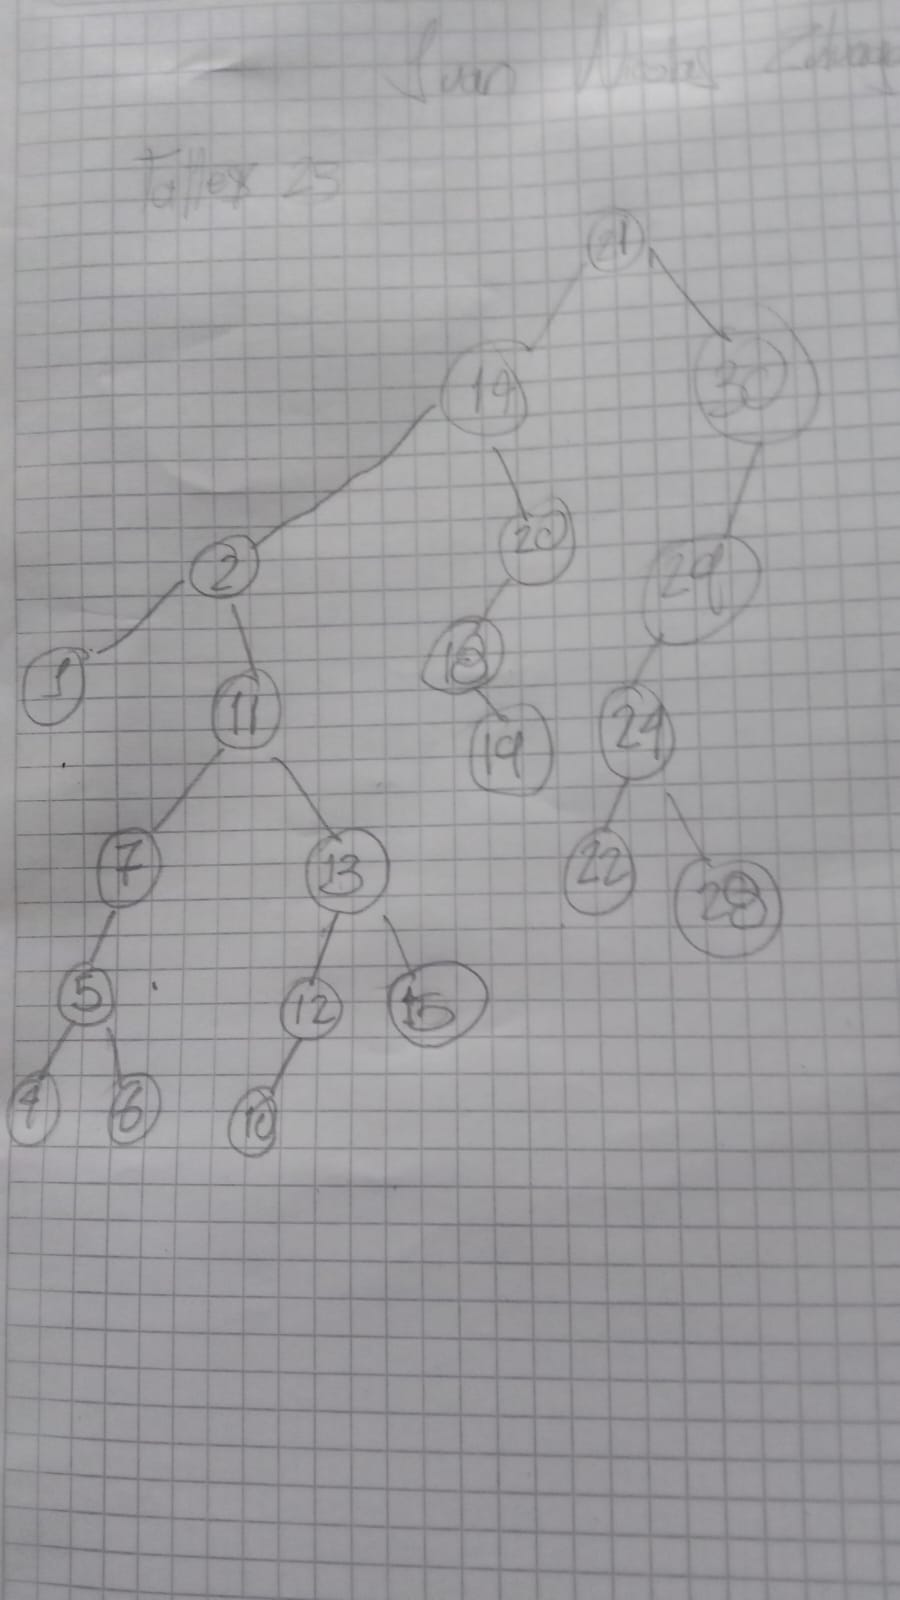 Juan Nicolas
Taller 25
21
19 30
2 20 29
1 11 18 24
19
7 13 22 28
5 12 15
4 6 10